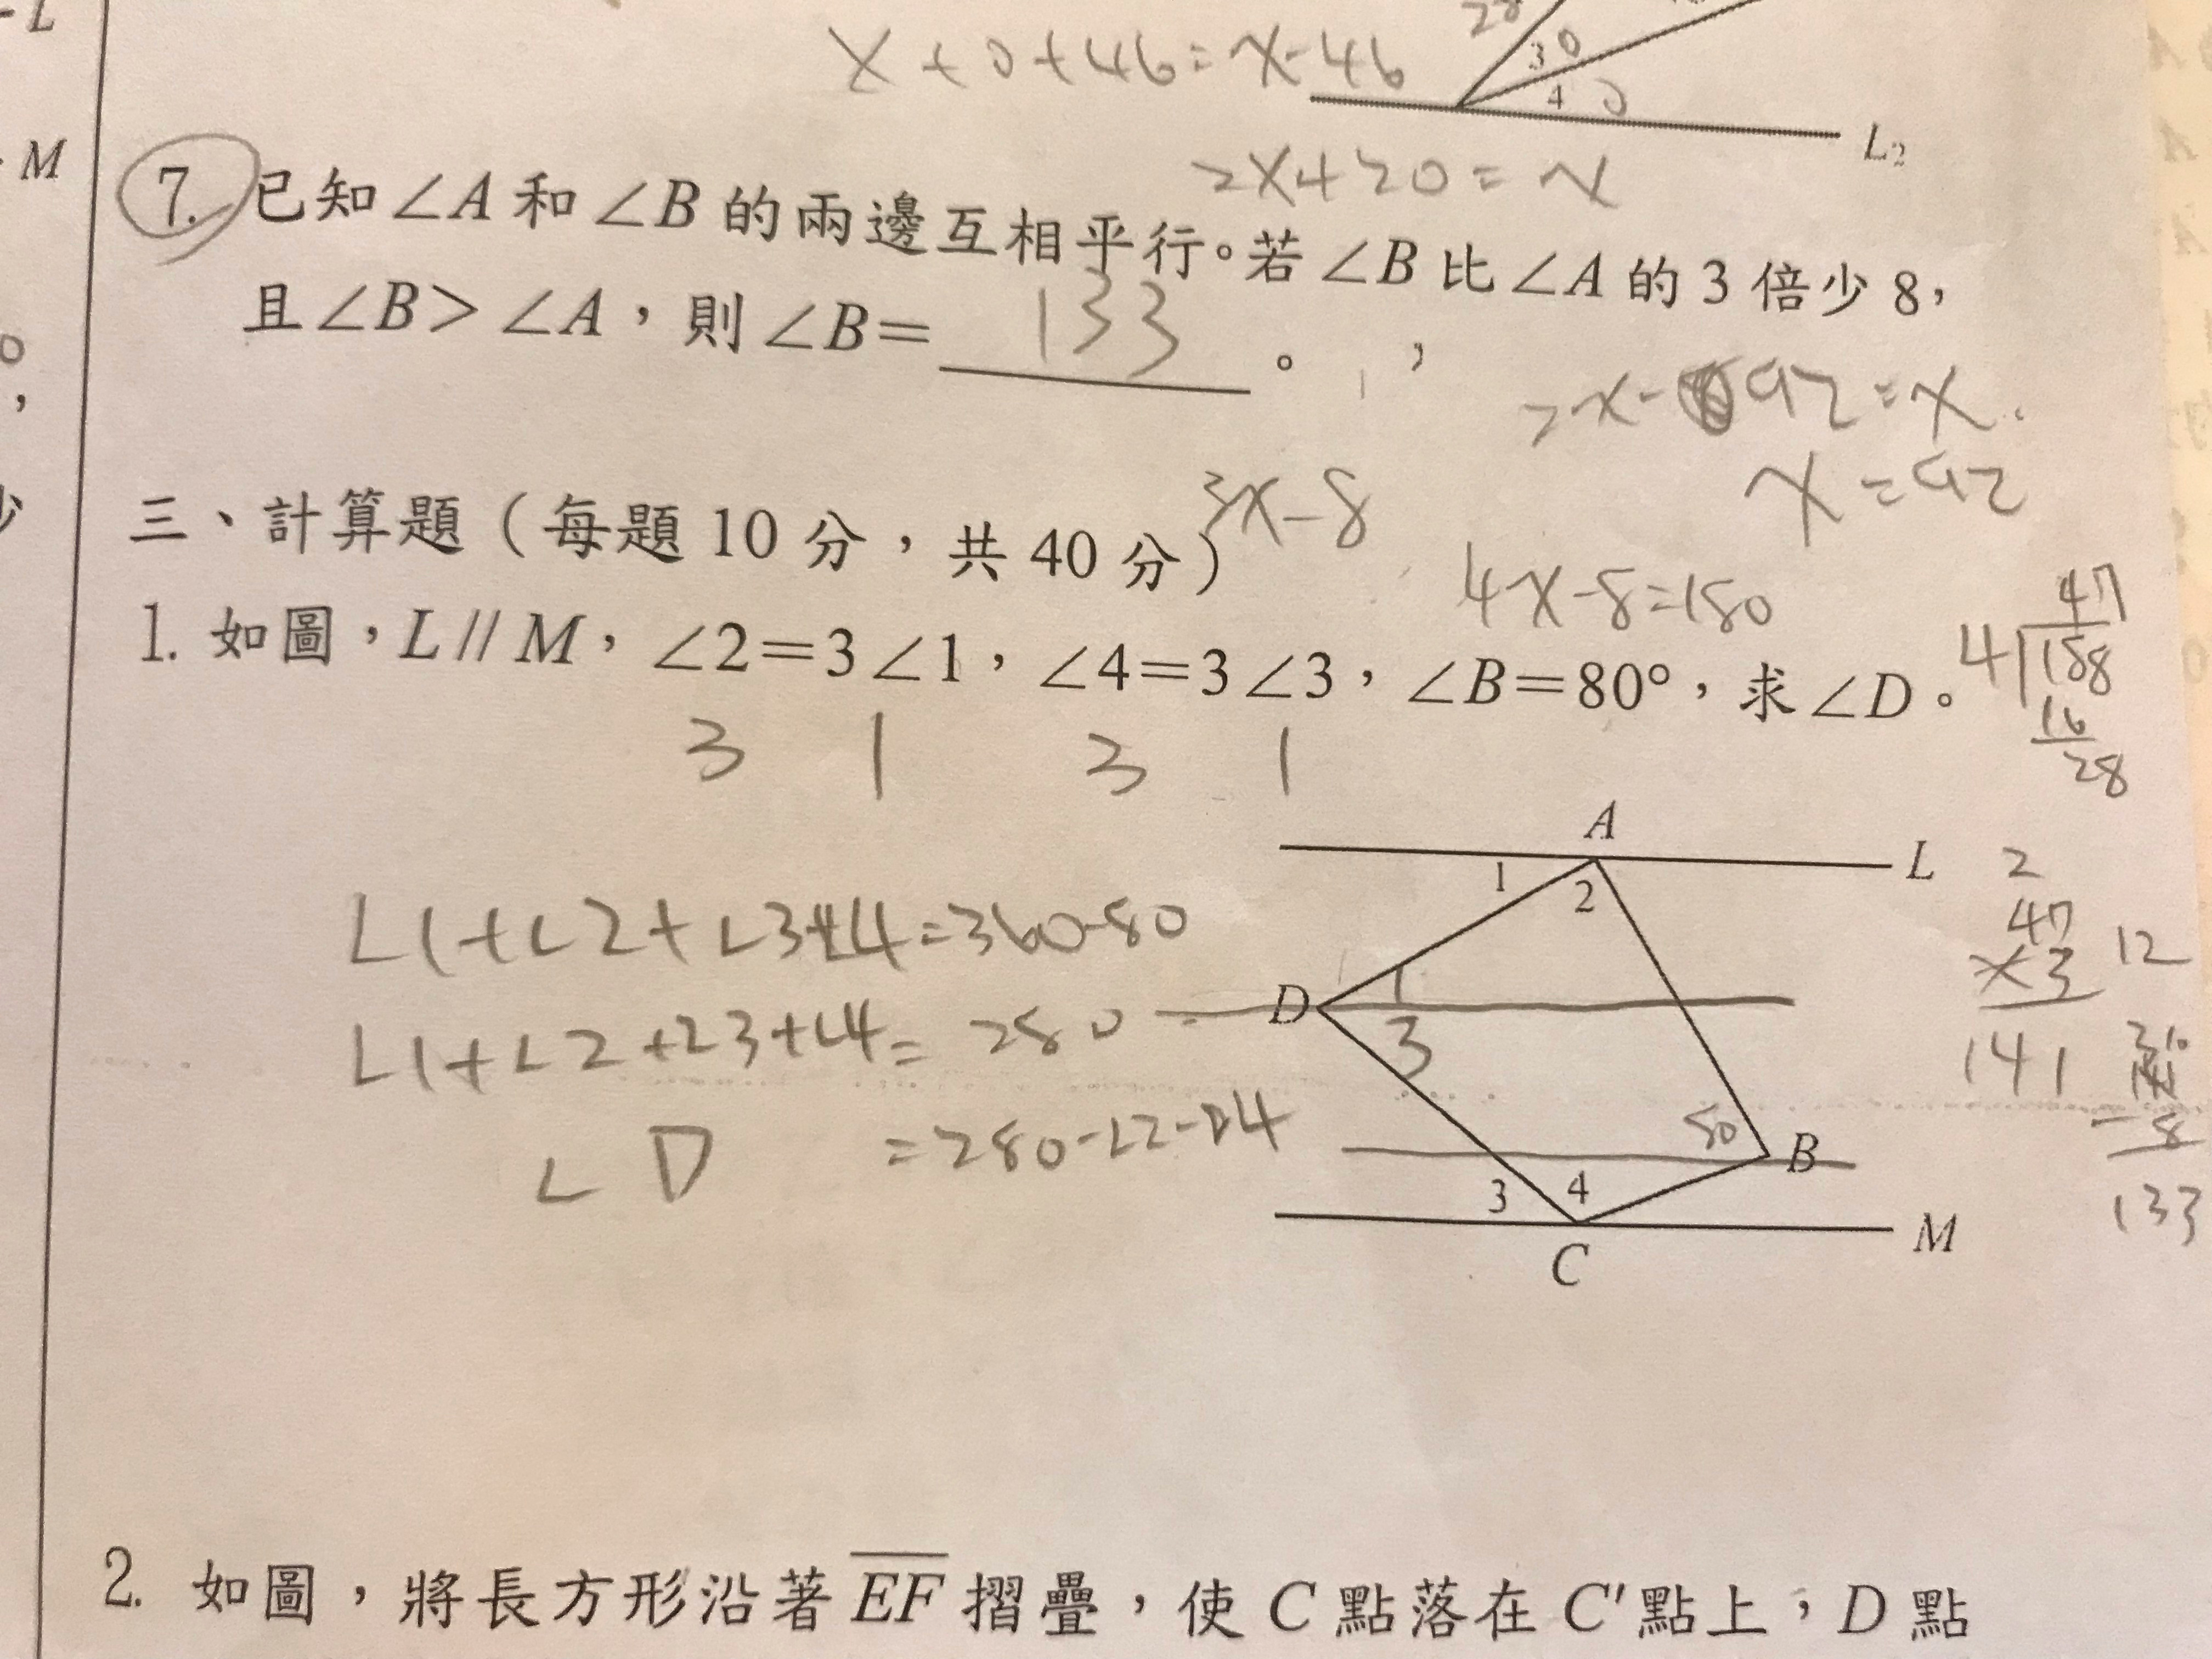 L
M
28
x+0+46=x-46
3 0
4 0
L₂
2x+20=x
7. 已知∠A和∠B的兩邊互相平行。若∠B比∠A的3倍少8,
且∠B>∠A,則∠B= 133 。
2x-92=x
x=92
三、計算題(每題10分,共40分)
3x-8
4x-8=180
1. 如圖,L//M,∠2=3∠1,∠4=3∠3,∠B=80°,求∠D。
3 1 3 1
47
4 188
16
28
A
L
1
2
2
47
×3
12
141
-8
133
∠1+∠2+∠3+∠4=360-80
∠1+∠2+∠3+∠4=280
∠D =280-∠2-∠4
D
1
3
80
B
3
4
M
C
2. 如圖,將長方形沿著EF摺疊,使C點落在C'點上,D點